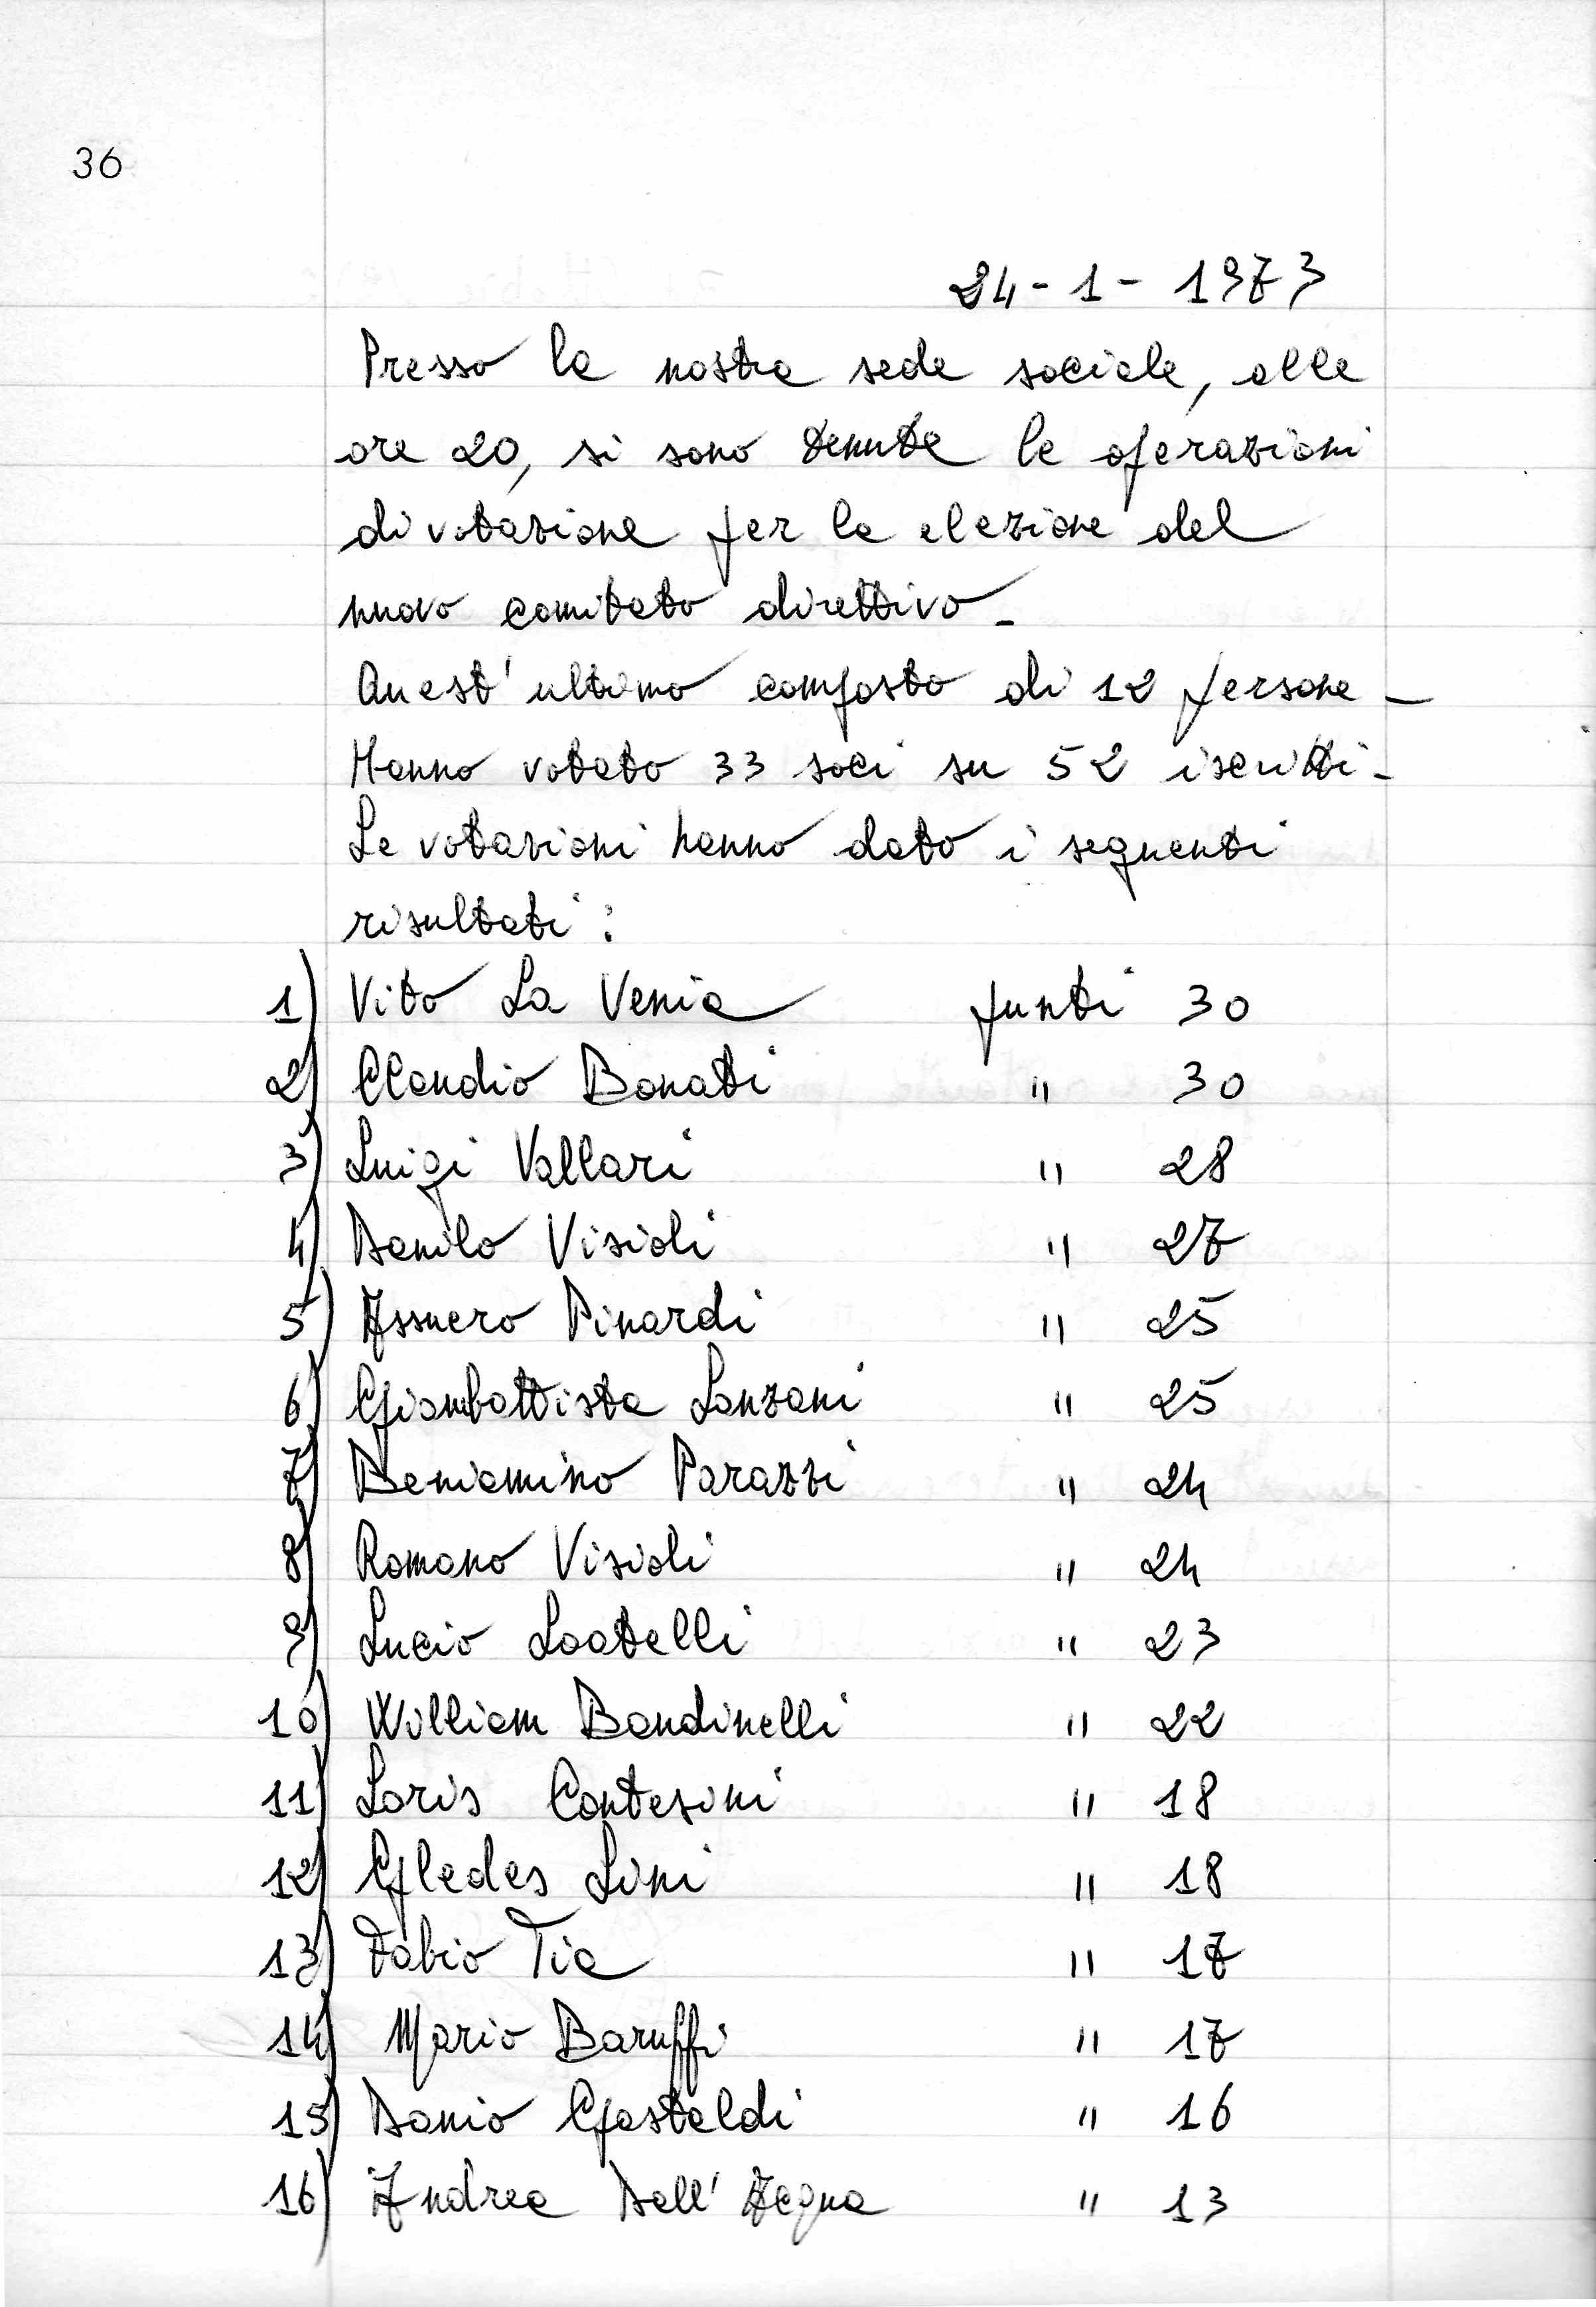 36
24-1-1973
Presso la nostra sede sociale, alle
ore 20, si sono tenute le operazioni
di votazione per la elezione del
nuovo comitato direttivo_
Quest'ultimo composto di 12 persone_
Hanno votato 33 soci su 52 iscritti_
Le votazioni hanno dato i seguenti
risultati:
1) Vito La Venia punti 30
2) Claudio Bonati " 30
3) Luigi Vallari " 28
4) Danilo Visioli " 27
5) Assuero Pinardi " 25
6) Giambattista Lanzani " 25
7) Beniamino Parazzi " 24
8) Romano Visioli " 24
9) Lucio Loatelli " 23
10) William Bandinelli " 22
11) Loris Contesini " 18
12) Gledes Lini " 18
13) Fabio Tia " 17
14) Mario Baruffi " 17
15) Danio Gastaldi " 16
16) Andrea Dell'Acqua " 13